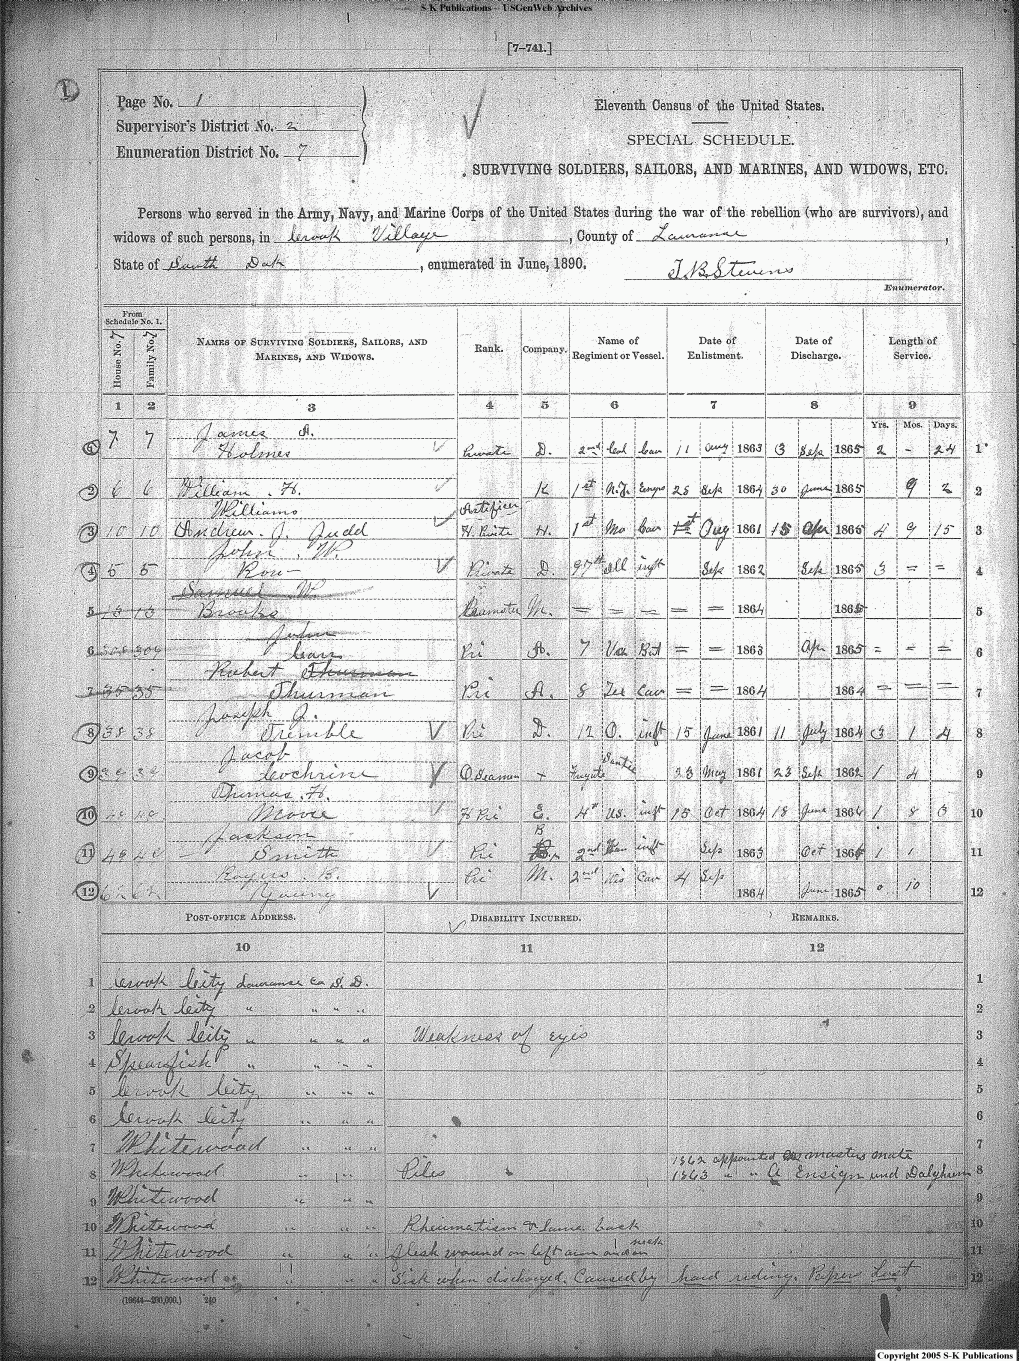 S-K Publications – USGenWeb Archives
[7–741.]
1
Page No. 1
Supervisor's District No. 2
Enumeration District No. 7
Eleventh Census of the United States.
SPECIAL SCHEDULE.
SURVIVING SOLDIERS, SAILORS, AND MARINES, AND WIDOWS, ETC.
Persons who served in the Army, Navy, and Marine Corps of the United States during the war of the rebellion (who are survivors), and
widows of such persons, in Crook Village, County of Lawranse,
State of South Dak, enumerated in June, 1890.
T.B. Stevens
Enumerator.
From Schedule No. 1.
House No. Family No.
NAMES OF SURVIVING SOLDIERS, SAILORS, AND MARINES, AND WIDOWS.
Rank. Company. Name of Regiment or Vessel. Date of Enlistment. Date of Discharge. Length of Service.
1 2 3 4 5 6 7 8 9
Yrs. Mos. Days.
1 7 7 James A. Holmes Private D. 2nd Col Cav 11 Aug 1863 3 Sep 1865 2 - 24 1
2 6 6 William. H. Williams Artificer K 1st N.Y. Engrs 25 Sep 1864 30 June 1865 9 2 2
3 10 10 Andrew. J. Judd Private H. 1st Mo Cav 1st Aug 1861 15 Apr 1865 4 9 15 3
4 5 5 John. W. Row Private D. 97th Ill inft Sep 1862 Sep 1865 3 = = 4
5 13 13 Samuel W. Brooks M. = = = = = 1864 1865 5
6 John Carr Pri A. 7 Bat = = 1863 Apr 1865 = = = 6
7 35 35 Robert Thurman Thurman Pri A. 8 Cav = = 1864 1864 = = = 7
8 38 38 Joseph Q. Tremble Pri D. 12 O. inft 15 June 1861 11 July 1864 3 1 4 8
9 39 39 Jacob Cochrine O. Seaman + Frigate Santie 23 May 1861 23 Sep 1862 1 4 9
10 Thomas. H. Moore Pri E. 4th US. inft 15 Oct 1864 18 June 1866 1 8 3 10
11 Jackson Smith Pri B 2nd inft Sep 1863 Oct 1864 1 1 11
12 Rogers. B. Young Pri M. 2nd Wis Cav 4 Sep 1864 June 1865 0 10 12
POST-OFFICE ADDRESS. DISABILITY INCURRED. REMARKS.
10 11 12
1 Crook City Lawranse Co S. D. 1
2 Crook City " " " " 2
3 Crook City " " " " Weakness of eyes 3
4 Spearfish " " " " 4
5 Crook City " " " 5
6 Crook City " " " 6
7 Whitewood " " " 7
8 Whitewood " " " Piles 1862 appointed as masters mate 8
1863 " " A Ensign und Dalghren
9 Whitewood " " " 9
10 Whitewood " " " Rheumatism & lame back 10
11 Whitewood " " " flesh wound on left arm and on neck 11
12 Whitewood " " " Sick when discharged. Caused by hard riding. Papers Lost 12
(19644—200,000.) 240
Copyright 2005 S-K Publications